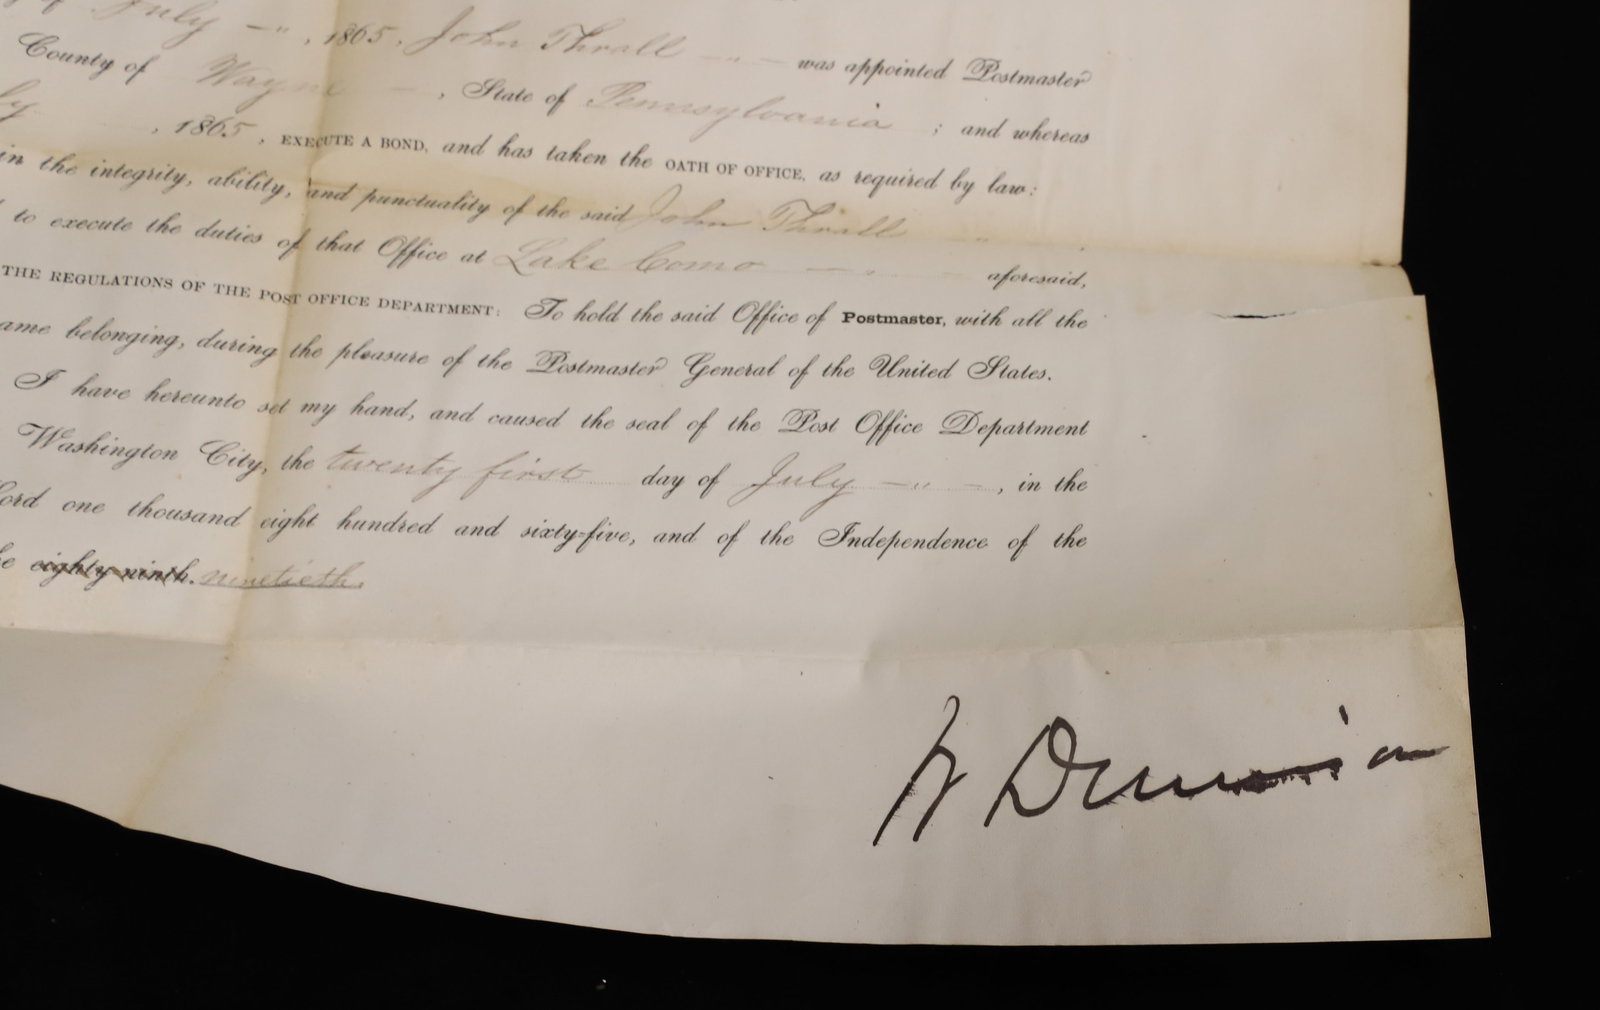 July —〃 , 1865, John Thrall —〃— was appointed Postmaster
County of Wayne — , State of Pennsylvania ; and whereas
, 1865, EXECUTE A BOND, and has taken the OATH OF OFFICE, as required by law:
in the integrity, ability, and punctuality of the said John Thrall —〃
to execute the duties of that Office at Lake Como —〃— aforesaid,
THE REGULATIONS OF THE POST OFFICE DEPARTMENT: To hold the said Office of Postmaster, with all the
ame belonging, during the pleasure of the Postmaster General of the United States.
I have hereunto set my hand, and caused the seal of the Post Office Department
Washington City, the twenty first day of July —〃— , in the
Lord one thousand eight hundred and sixty-five, and of the Independence of the
he eighty-ninth. ninetieth.
W Dennison